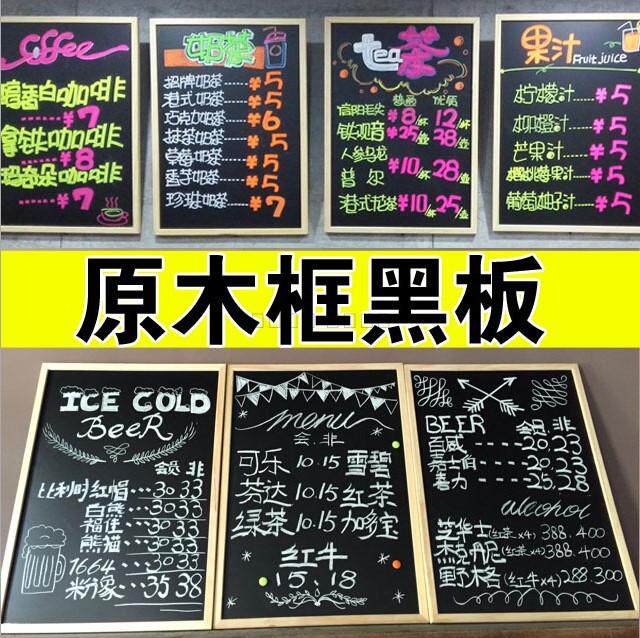 Coffee
咖啡
¥7
拿铁咖啡
¥8
玛奇朵咖啡
¥7
奶茶
招牌奶茶-----¥5
港式奶茶-----¥5
巧克力奶茶---¥6
抹茶奶茶-----¥5
草莓奶茶-----¥5
香芋奶茶-----¥5
珍珠奶茶-----¥7
tea茶
普通 优质
信阳毛尖 ¥8/杯 12/杯
铁观音 ¥25/壶 38/壶
人参乌龙
普尔 ¥10/杯 28/壶
港式花茶 ¥10/杯 25/壶
果汁
Fruit juice
柠檬汁------¥5
------¥5
芒果汁------¥5
果汁---¥5
葡萄柚子汁---¥5
原木框黑板
ICE COLD
BeeR
会员 非
比利时红帽···30 33
白熊···30 33
福佳···30 33
熊猫···30 33
1664···30 33
粉象···35 38
menu
会.非
可乐 10.15 雪碧
芬达 10.15 红茶
绿茶 10.15 加多宝
红牛
15.18
BEER 会员 非
百威-----20.23
嘉士伯----20.23
喜力-----25.28
alcohol
芝华士(红茶x4) 388.400
杰克丹尼(红茶x4) 388.400
野木格(红牛x4) 288.300